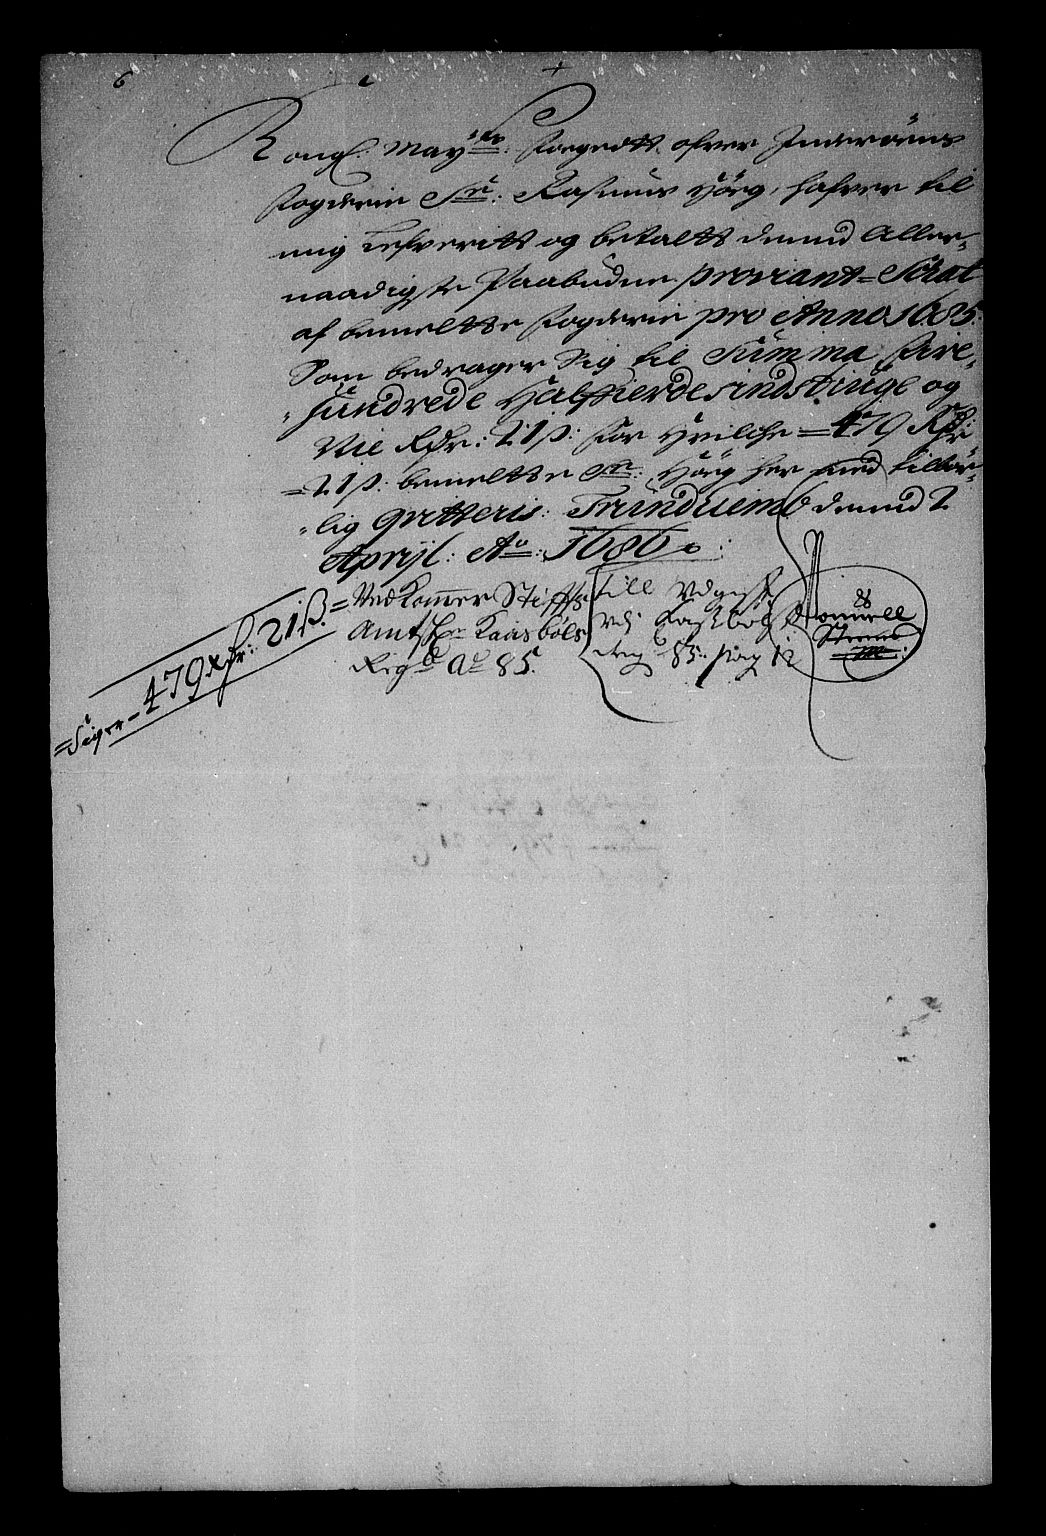 6
Kongl: May:ts: Foegedt ofver Inderøens
fogderie Sr: Rasmus Hòrg, hafver til
mig Lefverit og betalt dennd Aller-
naadigste Paabudne proviant=Schat
af bemelte fogderie pro Anno 1685:
Som bedrager Sig til Summa fire-
hundrede Halffierdesindstiuge og
Nie Rdr: 21ß: for Hvilche =479 Rdr
=21ß: bemelte Sr: Hòrg her med tilbør-
lig qvitteris: Trundhiemb dennd 2
Aprijl: Ao: 1686:
Siger- 479 Rdr: 21ß.
=Ved Kammer Stiffts
Amt Kaasbøls
Regd Ao 85.
till
85: pag 12